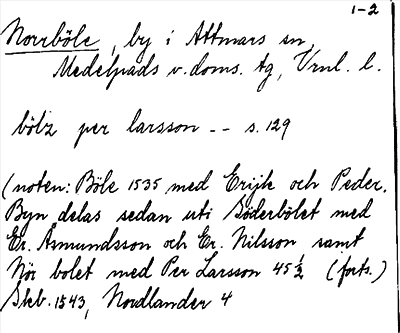 1-2
Norrböle, by i Attmars sn,
Medelpads v. doms. tg, Vrnl. l.
bölz per larsson -- s. 129
(noten: Böle 1535 med Erijk och Peder.
Byn delas sedan uti Söderbölet med
Er. Asmundsson och Er. Nilsson samt
Nör bolet med Per Larsson 45 1/2 (forts.)
Skb. 1543, Nordlander 4